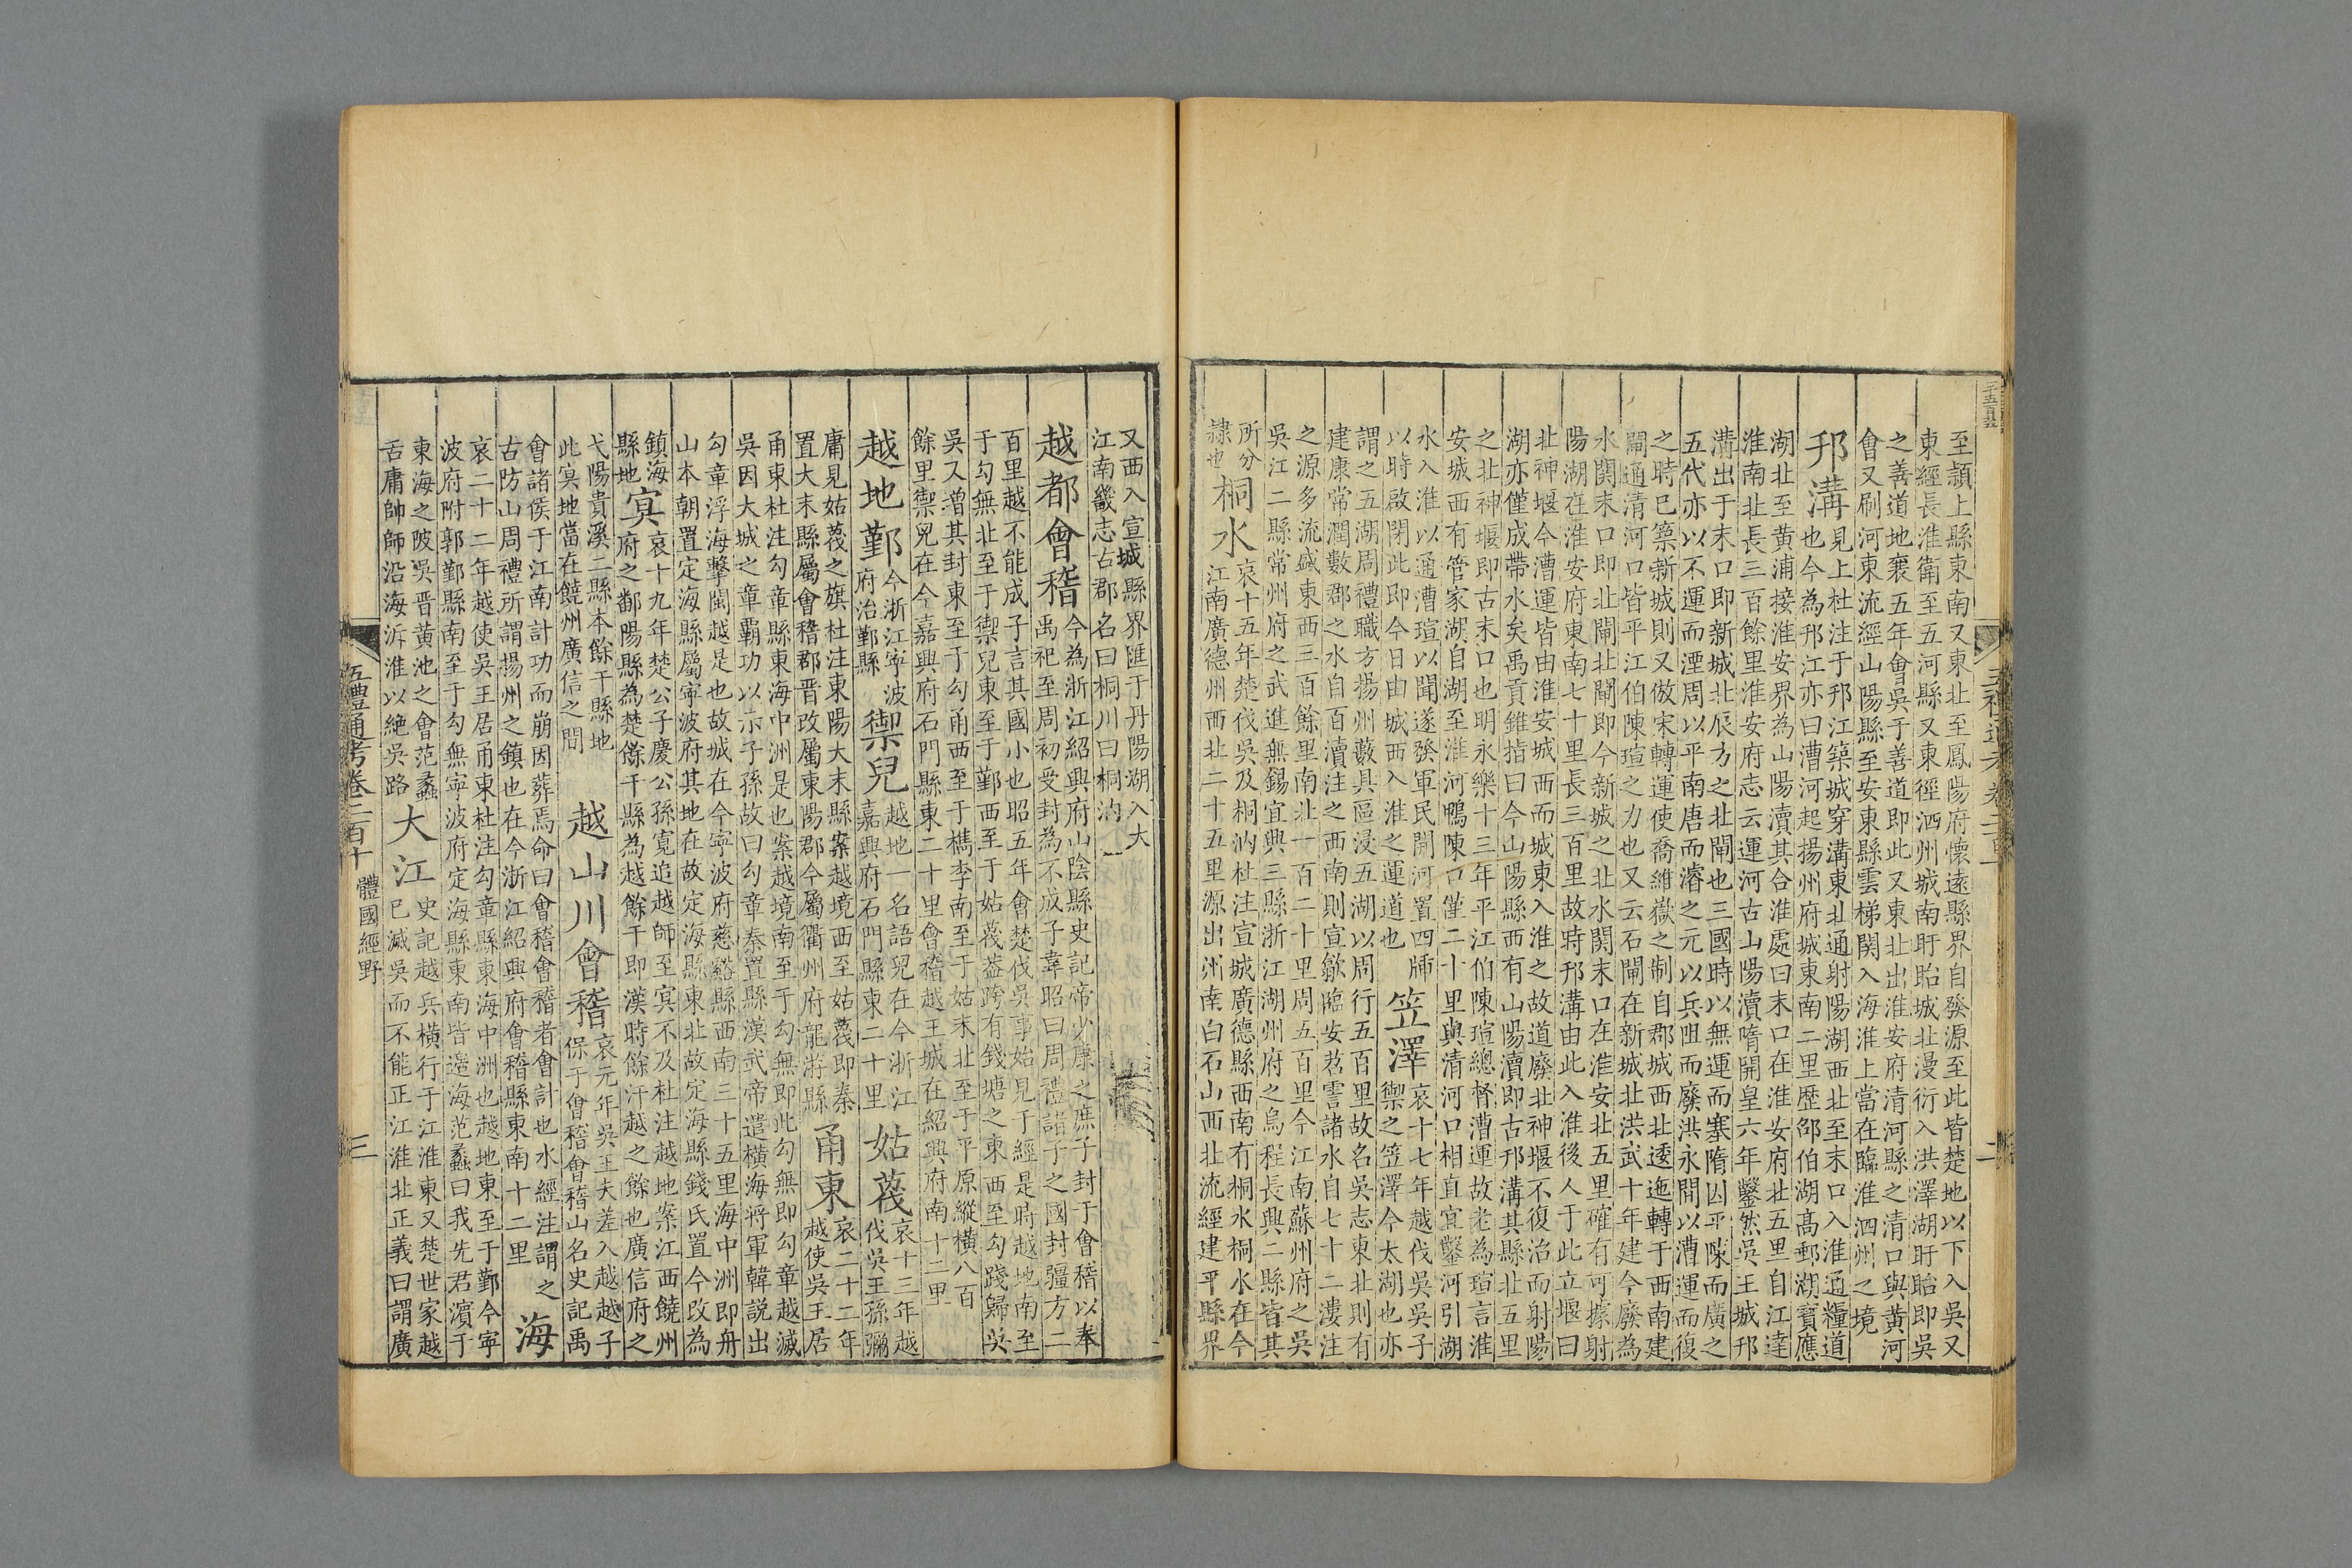 至潁上縣東南又東北至鳳陽府懷遠縣界自發源至此皆楚地以下入吳又
東經長淮衛至五河縣又東徑泗州城南盱眙城北漫衍入洪澤湖盱眙即吳
之善道地襄五年會吳于善道即此又東北出淮安府清河縣之清口與黃河
會又刷河東流經山陽縣至安東縣雲梯関入海淮上當在臨淮泗州之境
邗溝
見上杜注于邗江築城穿溝東北通射陽湖西北至末口入淮通糧道
也今為邗江亦曰漕河起揚州府城東南二里歷邵伯湖高郵湖寶應
湖北至黄浦接淮安界為山陽瀆其合淮處曰末口在淮安府北五里自江達
淮南北長三百餘里淮安府志云運河古山陽瀆隋開皇六年鑿然吳王城邗
溝出于末口即新城北辰方之北閘也三國時以無運而塞隋因平陳而廣之
五代亦以不運而湮周以平南唐而濬之元以兵阻而廢洪永間以漕運而復
之時已築新城則又倣宋轉運使喬維嶽之制自郡城西北逶迤轉于西南建
閘通清河口皆平江伯陳瑄之力也又云石閘在新城北洪武十年建今廢為
水関末口即北閘北閘即今新城之北水関末口在淮安北五里確有可據射
陽湖在淮安府東南七十里長三百里故時邗溝由此入淮後人于此立堰曰
北神堰今漕運皆由淮安城西而城東入淮之故道廢北神堰不復治而射陽
湖亦僅成帶水矣禹貢錐指曰今山陽縣西有山陽瀆即古邗溝其縣北五里
之北神堰即古末口也明永樂十三年平江伯陳瑄總督漕運故老為瑄言淮
安城西有管家湖自湖至淮河鴨陳口僅二十里與清河口相直宜鑿河引湖
水入淮以通漕瑄以聞遂發軍民開河置四牐
以時啟閉此即今日由城西入淮之運道也
笠澤
哀十七年越伐吳吳子
禦之笠澤今太湖也亦
謂之五湖周禮職方揚州藪具區浸五湖以周行五百里故名吳志東北則有
建康常潤數郡之水自百瀆注之西南則宣歙臨安苕霅諸水自七十二漊注
之源多流盛東西三百餘里南北一百二十里周五百里今江南蘇州府之吳
吳江二縣常州府之武進無錫宜興三縣浙江湖州府之烏程長興二縣皆其
所分
隷也
桐水
哀十五年楚伐吳及桐汭杜注宣城廣德縣西南有桐水桐水在今
江南廣德州西北二十五里源出州南白石山西北流經建平縣界
又西入宣城縣界匯于丹陽湖入大
江南畿志古郡名曰桐川曰桐汭
越都會稽
今為浙江紹興府山陰縣史記帝少康之庶子封于會稽以奉
禹祀至周初受封為不成子韋昭曰周禮諸子之國封疆方二
百里越不能成子言其國小也昭五年會楚伐吳事始見于經是時越地南至
于勾無北至于禦兒東至于鄞西至于姑蔑葢跨有錢塘之東西至勾踐歸吳
吳又增其封東至于勾甬西至于檇李南至于姑末北至于平原縱横八百
餘里禦兒在今嘉興府石門縣東二十里會稽越王城在紹興府南十二里
越地鄞
今浙江寧波
府治鄞縣
禦兒
越地一名語兒在今浙江
嘉興府石門縣東二十里
姑蔑
哀十三年越
伐吳王孫彌
庸見姑蔑之旗杜注東陽大末縣案越境西至姑蔑即秦
置大末縣屬會稽郡晋改屬東陽郡今屬衢州府龍游縣
甬東
哀二十二年
越使吳王居
甬東杜注勾章縣東海中洲是也案越境南至于勾無即此勾無即勾章越滅
吳因大城之章霸功以示子孫故曰勾章秦置縣漢武帝遣横海將軍韓説出
勾章浮海擊閩越是也故城在今寧波府慈谿縣西南三十五里海中洲即舟
山本朝置定海縣屬寧波府其地在故定海縣東北故定海縣錢氏置今改為
鎮海
縣地
㝠
哀十九年楚公子慶公孫寛追越師至㝠不及杜注越地案江西饒州
府之鄱陽縣為楚餘干縣為越餘干即漢時餘汗越之餘也廣信府之
弋陽貴溪二縣本餘干縣地
此㝠地當在饒州廣信之間
越山川會稽
哀元年吳王夫差入越越子
保于會稽會稽山名史記禹
會諸侯于江南計功而崩因葬焉命曰會稽會稽者會計也水經注謂之
古防山周禮所謂揚州之鎮也在今浙江紹興府會稽縣東南十二里
海
哀二十二年越使吳王居甬東杜注勾章縣東海中洲也越地東至于鄞今寧
波府附郭鄞縣南至于勾無寧波府定海縣東南皆邊海范蠡曰我先君濱于
東海之陂吳晋黃池之會范蠡
舌庸帥師沿海泝淮以絶吳路
大江
史記越兵横行于江淮東又楚世家越
已滅吳而不能正江淮北正義曰謂廣
五禮通考卷二百十
體國經野
三